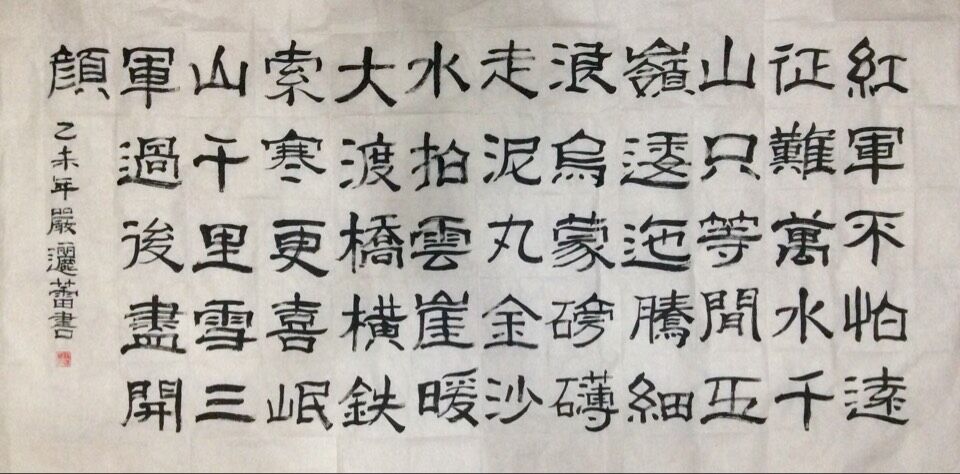 紅軍不怕遠
征難萬水千
山只等閒五
嶺逶迤騰細
浪烏蒙磅礴
走泥丸金沙
水拍雲崖暖
大渡橋橫鉄
索寒更喜岷
山千里雪三
軍過後盡開
顔
乙未年嚴邐蕾書